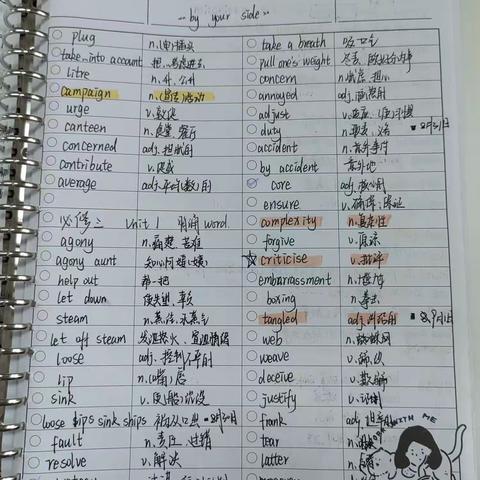 by your side
plug n.(电)插头
take...into account 把...考虑进去
litre n.升,公升
campaign n.(宣传)活动
urge v.敦促
canteen n.食堂 餐厅
concerned adj.担忧的
contribute v.
average adj.平均(数)的
必修三 Unit 1 明润 word
agony n.痛楚 苦难
agony aunt 知心阿姨(姨)
help out 帮一把
let down 使失望 辜负
steam n.蒸汽,水蒸气
let off steam 发泄怒火、宣泄情绪
loose adj.控制不牢的
lip n.(嘴)唇
sink v.使(船)沉没
loose lips sink ships 祸从口出
fault n.责任,过错
resolve v.解决
take a breath
pull one's weight 尽责,做好份内事
concern n.忧虑,担心
annoyed adj.恼怒的
adjust v.适应,(使)习惯
duty n.职责,义务
accident n.意外事件
by accident 意外地
core adj.核心的
ensure v.确保;保证
complexity n.复杂性
forgive v.原谅
criticise v.批评
embarrassment n.
boxing n.拳击
tangled adj.纠结的
web n.蜘蛛网
weave v.编织
deceive v.欺骗
justify v.
frank adj.坦率的
tear n.
latter n.
WITH ME